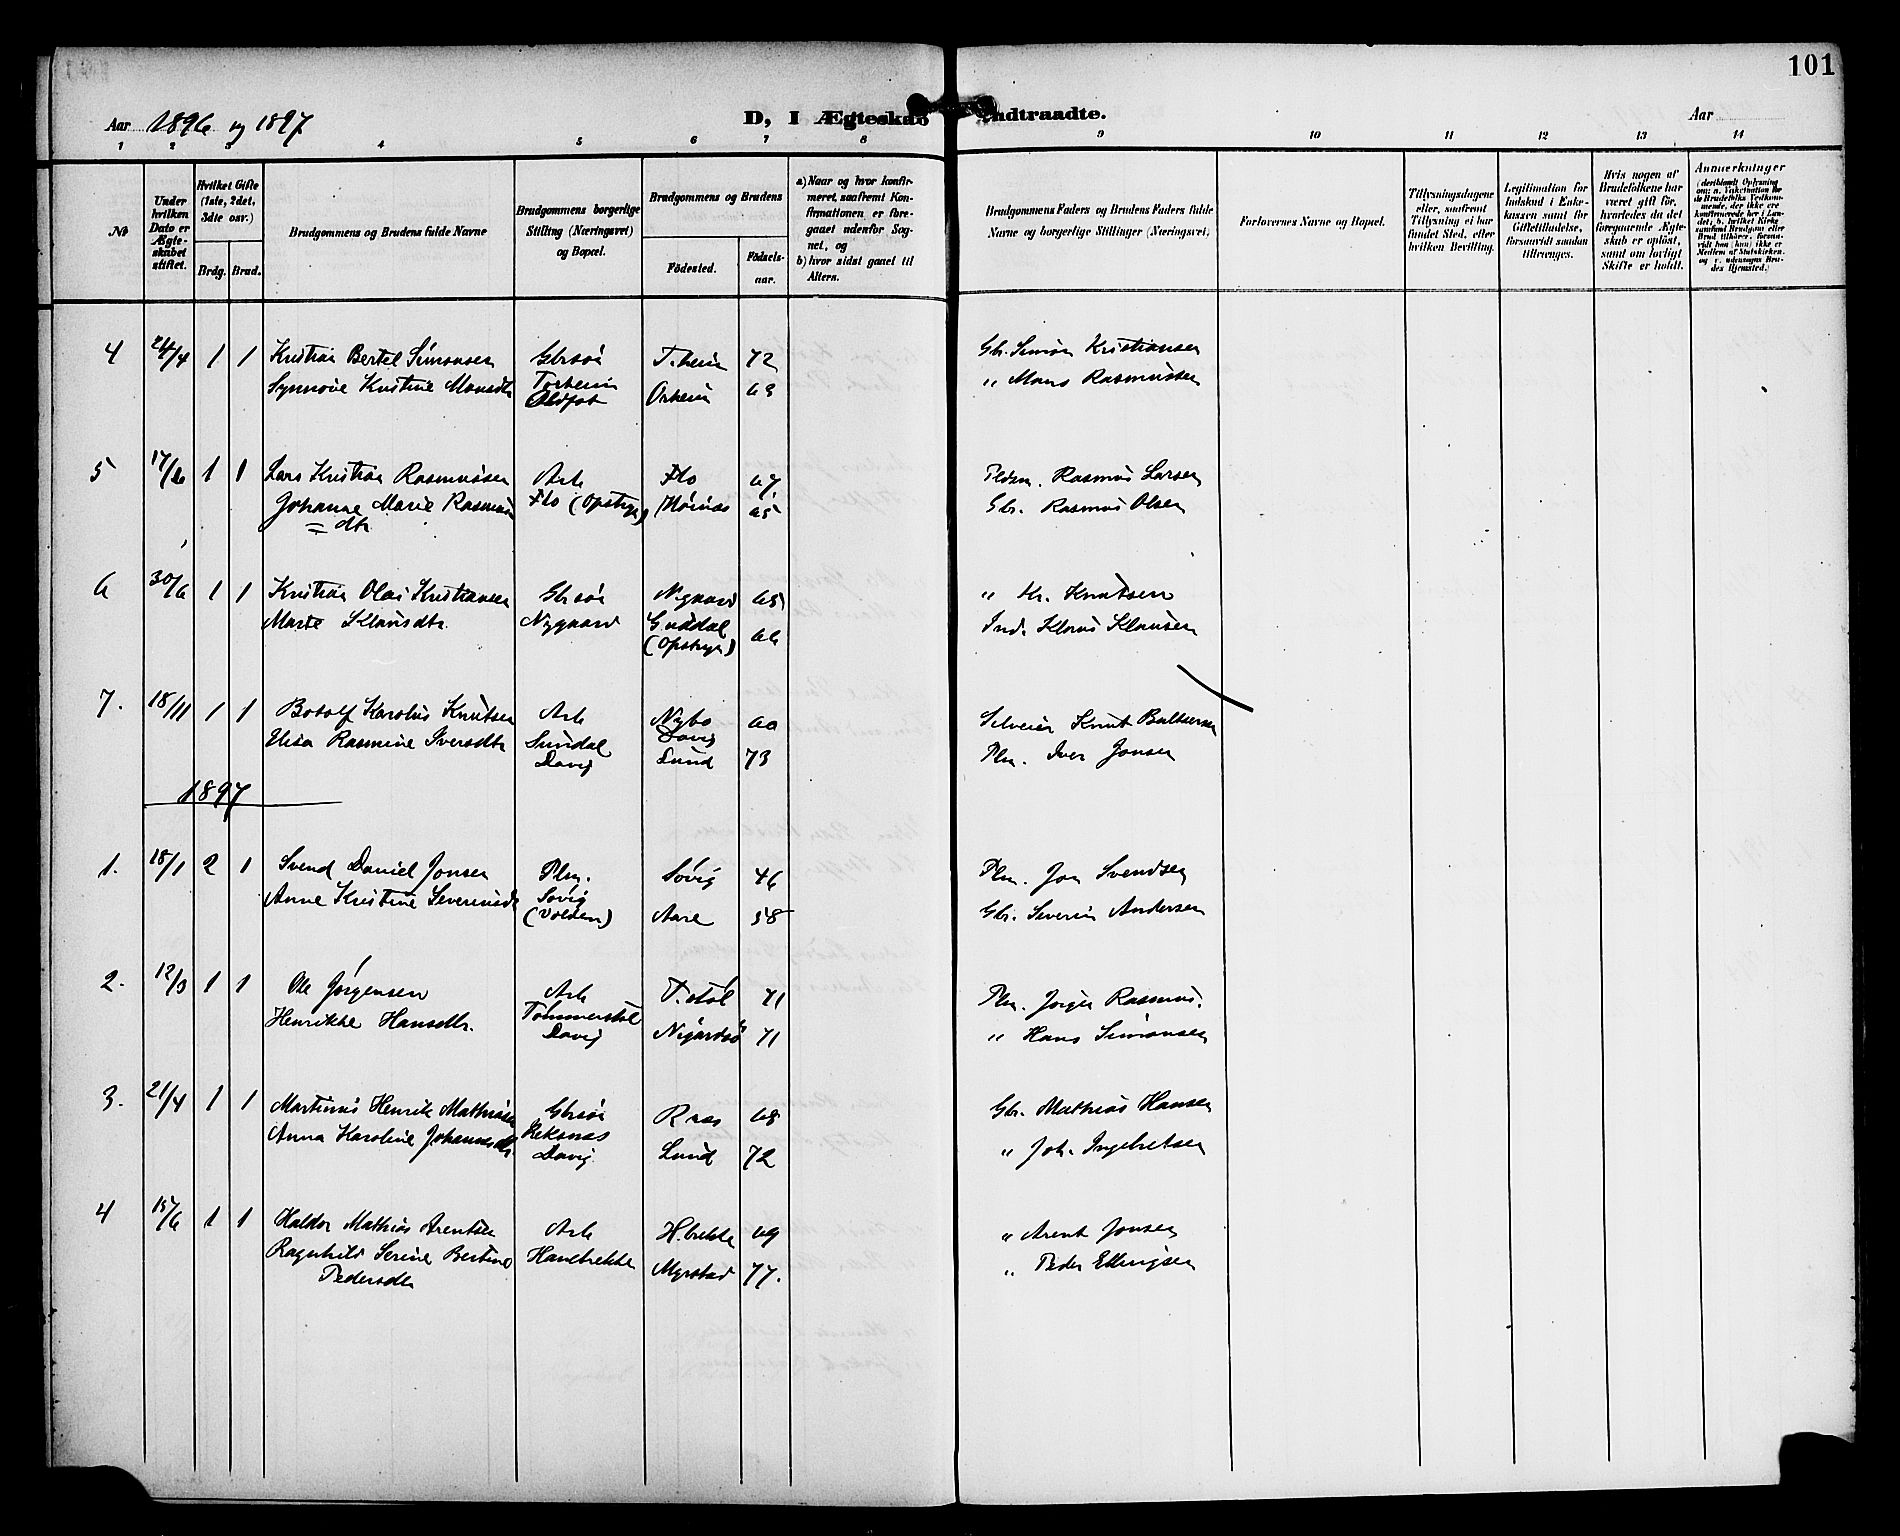 101
Aar 1896 og 1897
D, I Ægteskab Indtraadte.
Aar
1 2 3 4 5 6 7 8 9 10 11 12 13 14
№
Under hvilken Dato er Ægteskabet stiftet.
Hvilket Gifte (1ste, 2det, 3die osv.)
Brdg. Brud.
Brudgommens og Brudens fulde Navne
Brudgommens borgerlige Stilling (Næringsvei) og Bopæl.
Brudgommens og Brudens
Födested.
Födselsaar.
a) Naar og hvor konfirmeret, saafremt Konfirmationen er foregaaet udenfor Sognet, og
b) hvor sidst gaaet til Altern.
Brudgommens Faders og Brudens Faders fulde Navne og borgerlige Stillinger (Næringsvei)
Forlovernes Navne og Bopæl.
Tillysningsdagene eller, saafremt Tillysning ei har fundet Sted, efter hvilken Bevilling.
Legitimation for Indskud i Enkekassen samt for Giftetilladelse, forsaavidt saadan tiltrænges.
Hvis nogen af Brudefolkene har været gift för, hvorledes da det foregaaende Ægteskab er oplöst, samt om lovligt Skifte er holdt.
Anmærkninger
4 24/4 1 1 Kristian Bertel Simonsen Gbrsøn T.heim 72 Gbr. Simon Kristiansen
Synnove Kristine Monsdtr Torheim Aldfot Orheim 63 " Mons Rasmussen
5 17/6 1 1 Lars Kristian Rasmussen Arb Flo 67 Pldsm. Rasmus Larsen
Johanne Marie Rasmus= dtr. Flo (Opstryn) Hornæs 65 Gbr. Rasmus Olsen
6 30/6 1 1 Kristian Olai Kristiansen Gbrsøn Nygaard 65 " Kr. Knutsen
Marte Klausdtr. Nygaard Guddal (Opstryn) 66 Ind. Klaus Klausen
7. 18/11 1 1 Botolf Karolus Knutsen Arb Nybo Davig 60 Selveier Knut Baltsersen
Elisa Rasmine Iversdtr Sundal Davig Lund 73 Plm. Iver Jonsen
1897
1. 18/1 2 1 Svend Daniel Jonsen Plm. Sørig 46 Plm. Jon Svendsen
Anne Kristine Severinsdtr Sørig (Volden) Aare 58 Gbr. Severin Andersen
2. 12/3 1 1 Ole Jørgensen Arb T.støl 71 Plm. Jørgen Rasmus.
Henrikke Hansdtr. Tømmerstøl Davig Nigardsø 71 " Hans Simonsen
3. 21/4 1 1 Martinus Henrik Mathiasen Gbrsøn Raas 68 Gbr. Mathias Hansen
Anna Karoline Johannesdtr. Reksnæs Davig Lund 72 " Joh. Ingebretsen
4 15/6 1 1 Haldor Mathias Arentsen Arb H.brekke 69 " Arent Jonsen
Ragnhild Serine Bertine Pedersdtr Havnebrekke Myrstad 77. " Peder Ellingsen